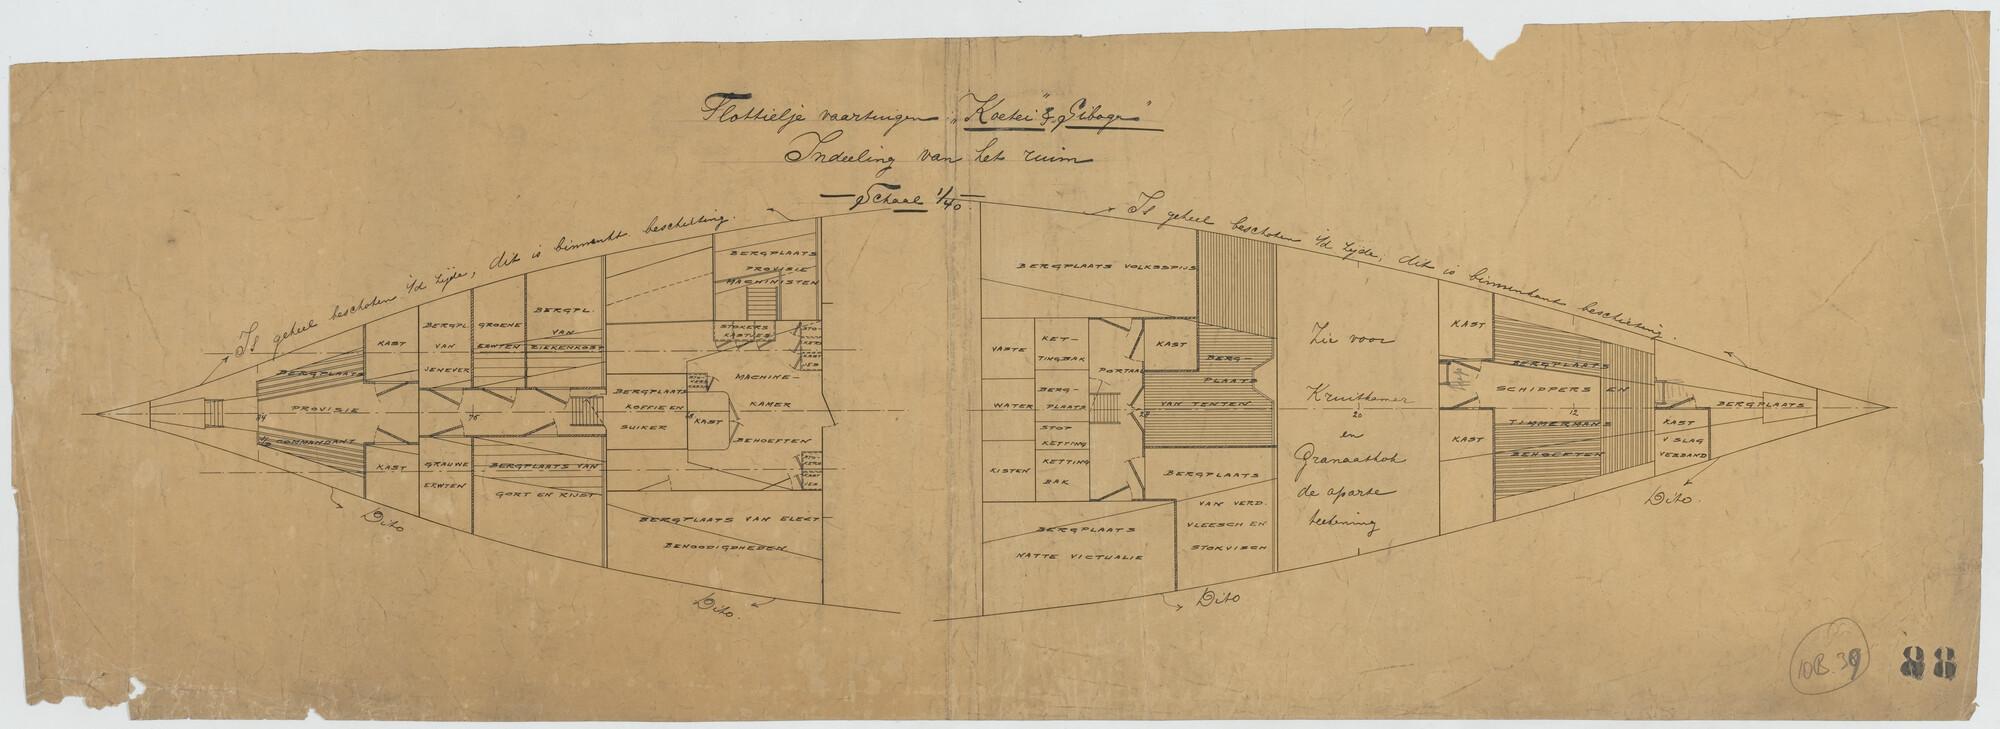 Flottielje vaartuigen „Koetei" & „Siboga"
Indeeling van het ruim
Schaal 1/40
Is geheel beschoten i/d zijde, dit is binnenkt beschieting.
Is geheel beschoten i/d zijde, dit is binnenkant beschieting.
BERGPLAATS
PROVISIE
COMMANDANT
84
KAST
KAST
BERGPL.
VAN
JENEVER
GROENE
ERWTEN
BERGPL.
VAN
ZIEKENKOST
76
GRAUWE
ERWTEN
BERGPLAATS VAN
GORT EN RIJST
BERGPLAATS
PROVISIE
MACHINISTEN
STOKERS
KASTJES
BERGPLAATS
KOFFIE EN
SUIKER
KAST
MACHINE-
KAMER
BEHOEFTEN
BERGPLAATS VAN ELECT
BENOODIGDHEDEN
Dito
Dito.
BERGPLAATS VOLKSSPIJS
VASTE
WATER
KISTEN
KET-
TINGBAK
BERG-
PLAATS
STOP
KETTING
KETTING
BAK
PORTAAL
KAST
BERG-
PLAATS
VAN TENTEN
28
BERGPLAATS
NATTE VICTUALIE
BERGPLAATS
VAN VERD.
VLEESCH EN
STOKVISCH
Dito
Zie voor
Kruitkamer
20
en
Granaathok
de aparte
teekening
KAST
KAST
BERGPLAATS
SCHIPPERS EN
12
TIMMERMANS
BEHOEFTEN
BERGPLAATS
KAST
V SLAG
VERBAND
Dito.
10B.39
88